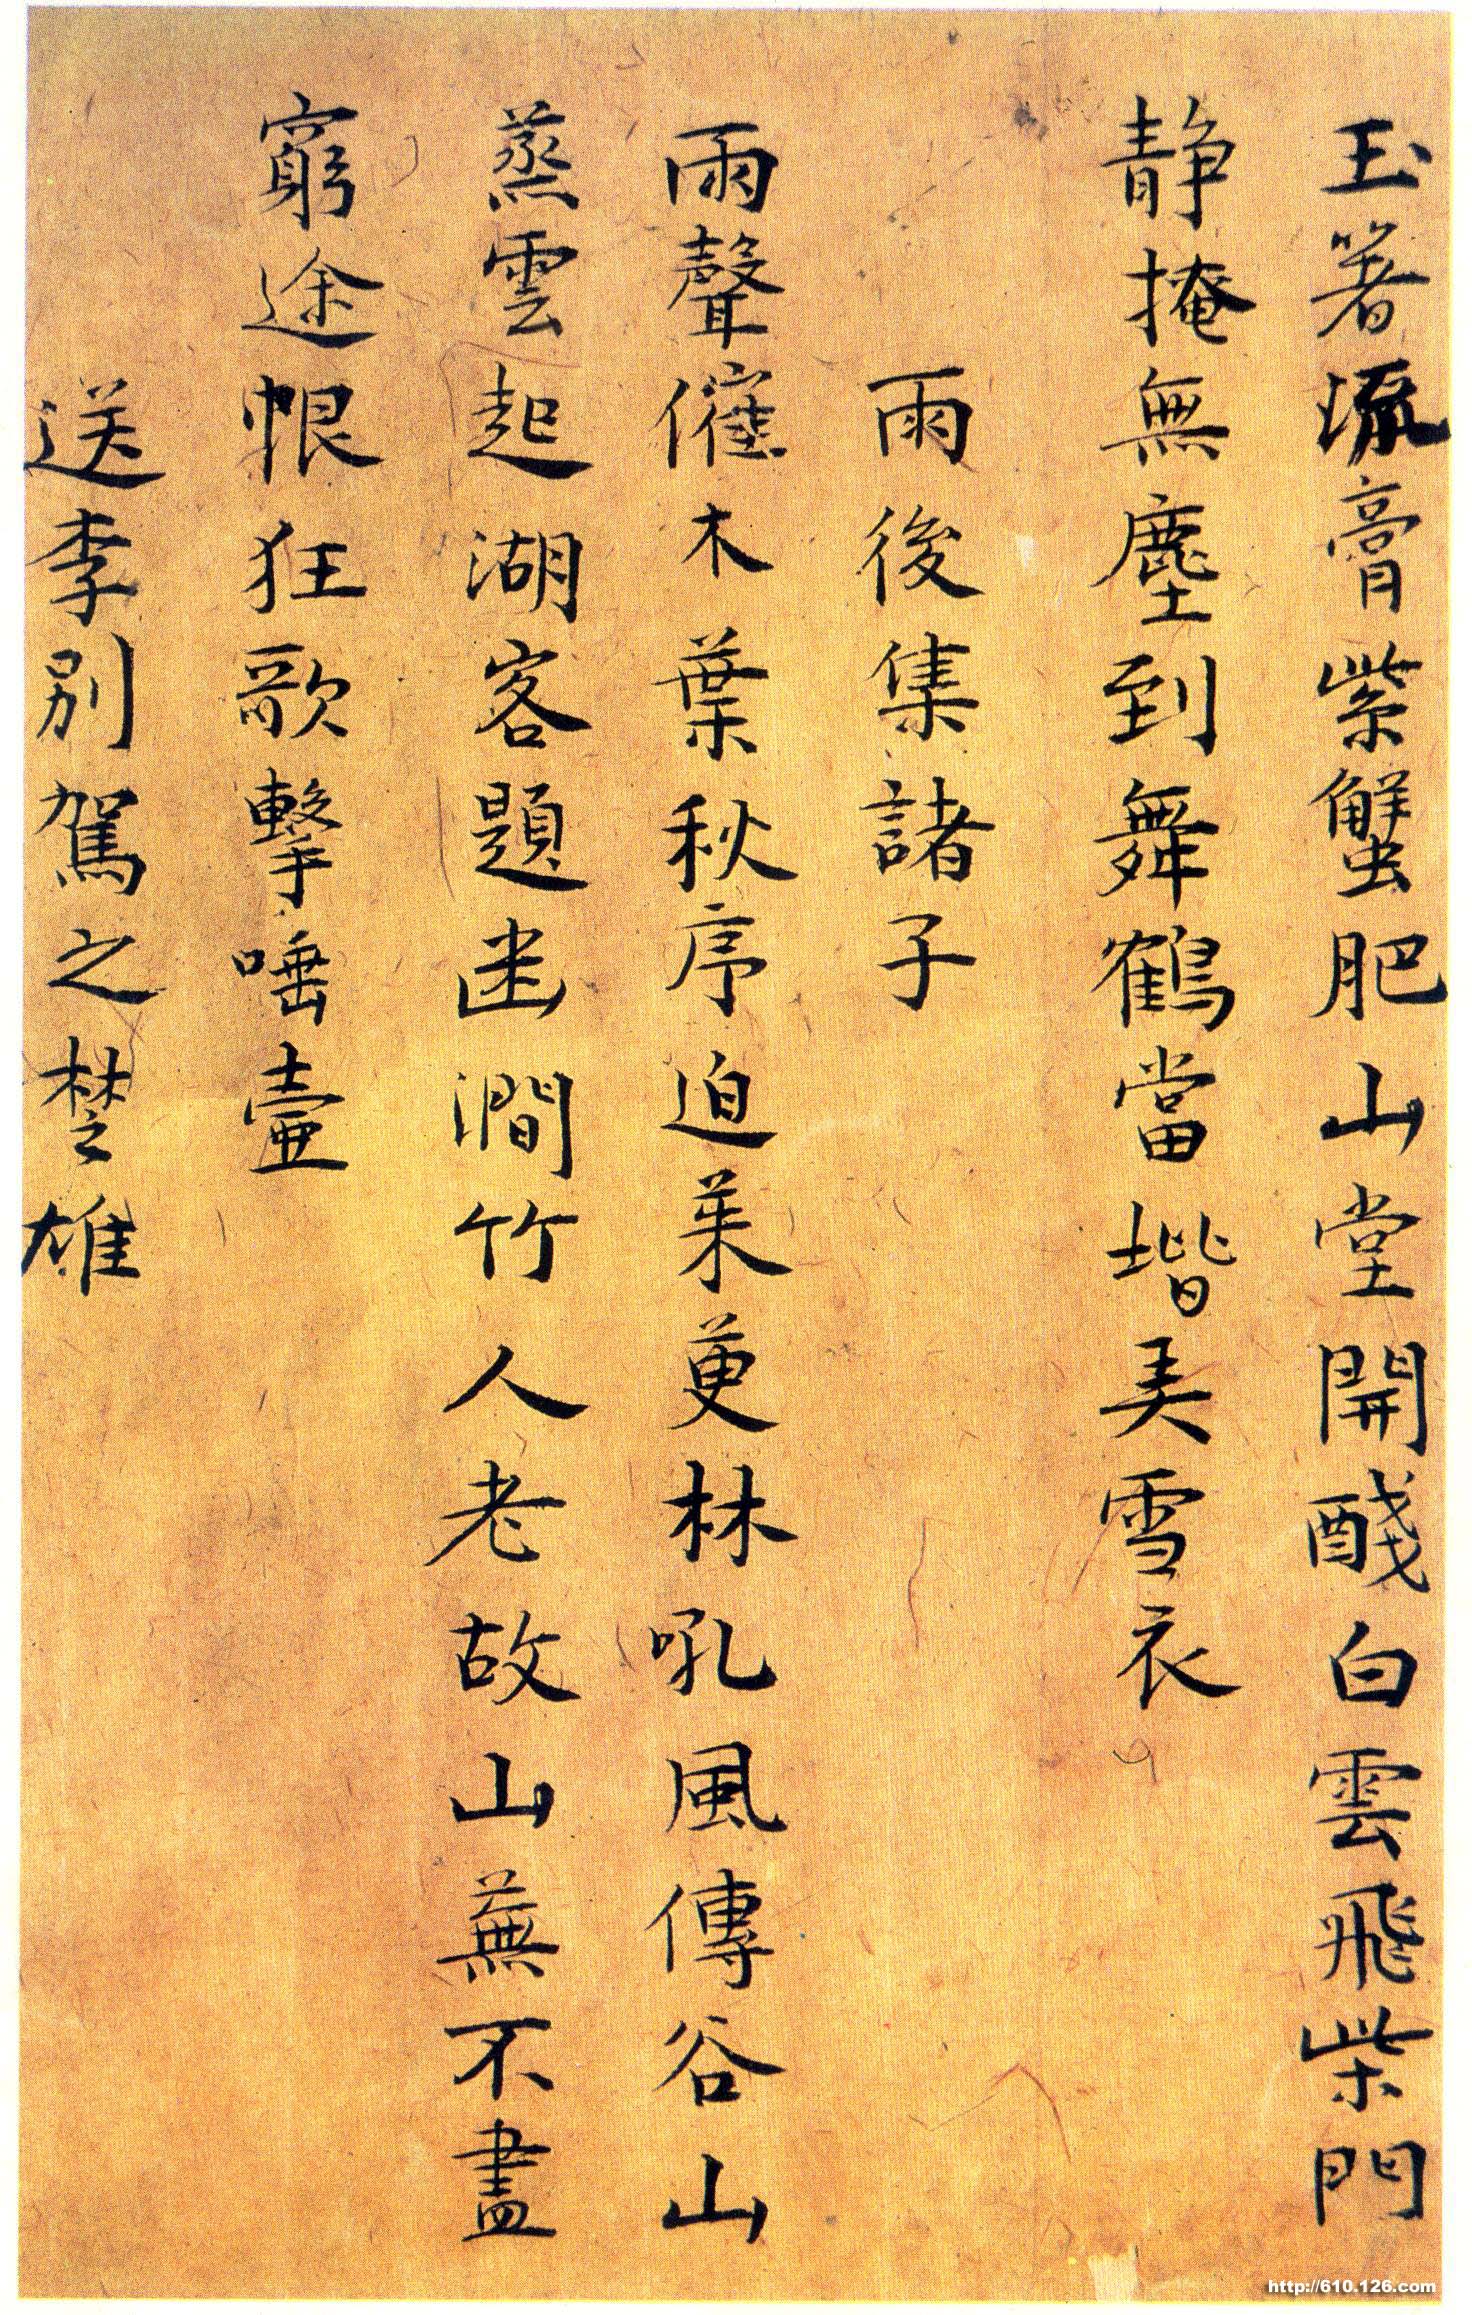 玉箸流膏紫蟹肥山堂開醆白雲飛柴門
静掩無塵到舞鶴當堦美雪衣
雨後集諸子
雨聲催木葉秋序迫茱萸林吼風傳谷山
蒸雲起湖客題迷澗竹人老故山蕪不盡
窮途恨狂歌擊唾壺
送李別駕之楚雄
http://610.126.com